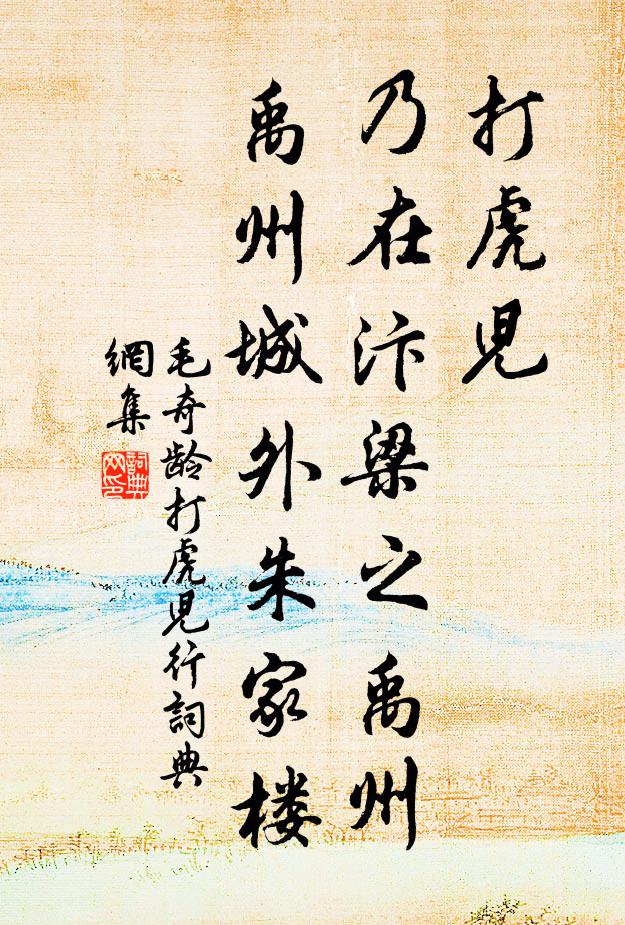 打虎児
乃在汴梁之禹州
禹州城外朱家楼
毛奇龄打虎児行詞典
網集
詞典網印